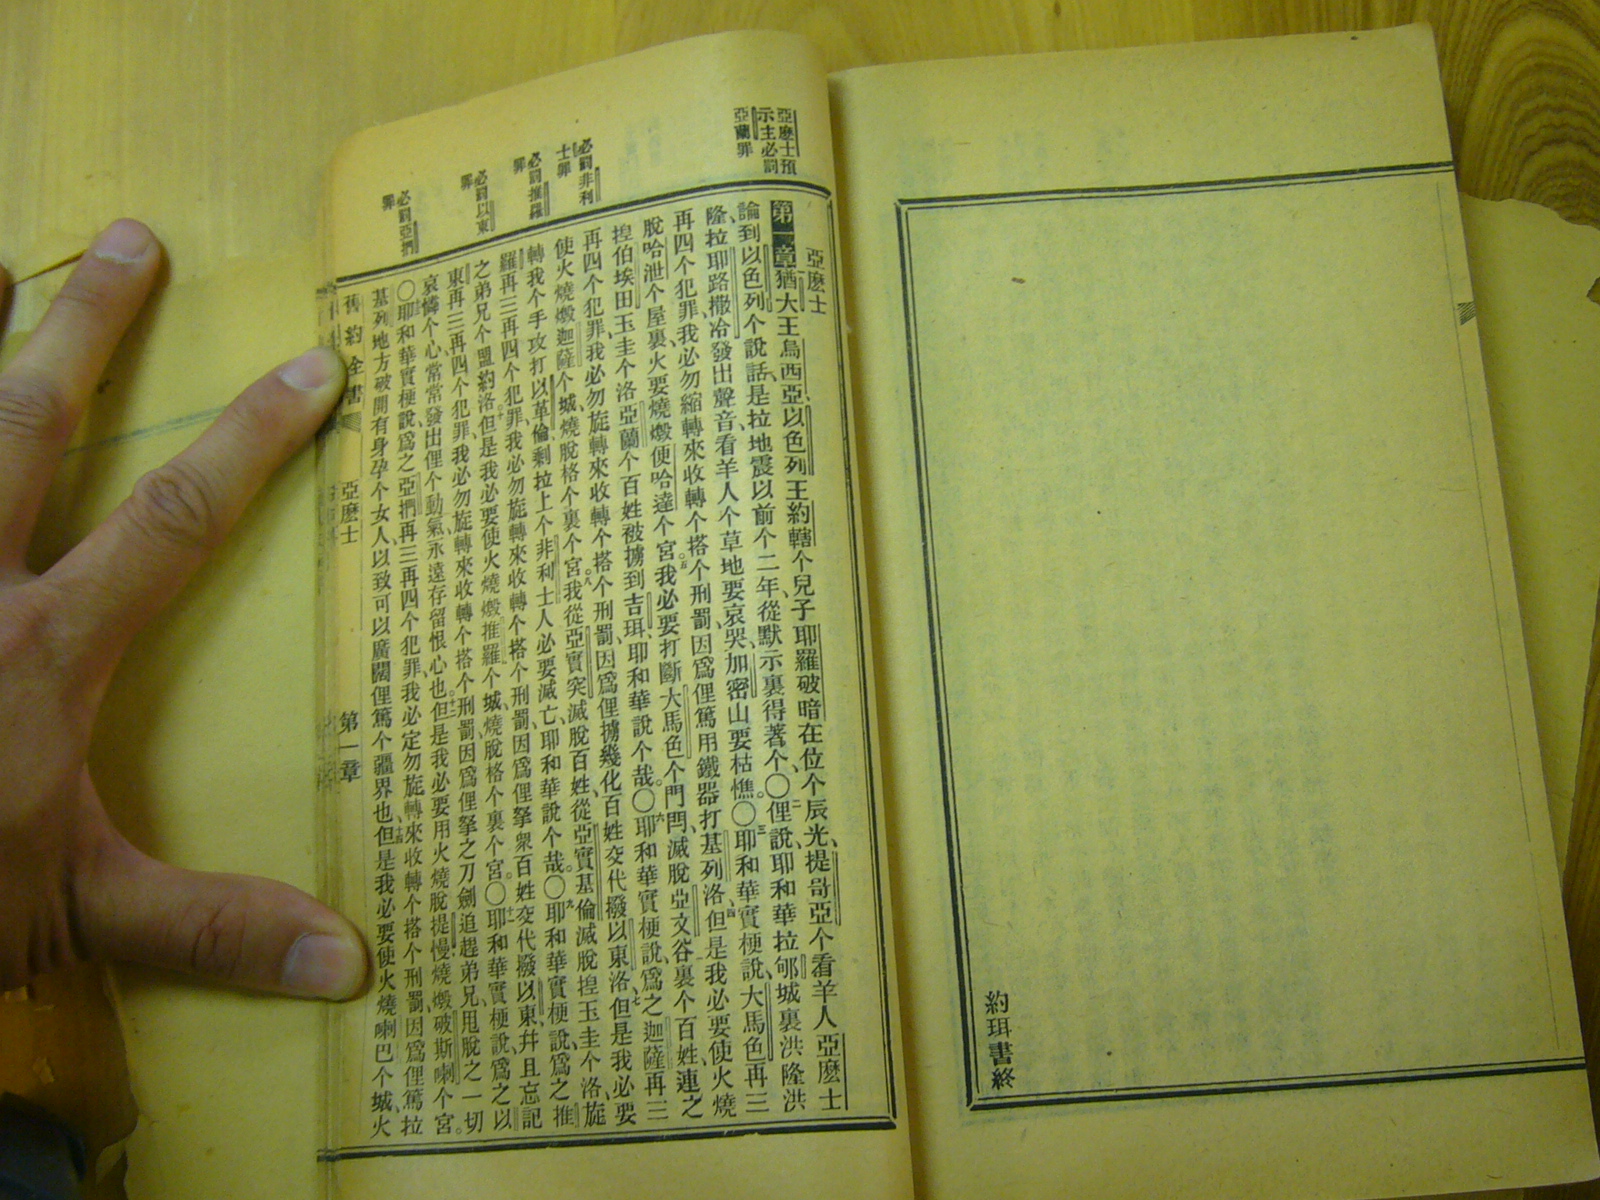 約珥書終
亞麽士預
示主必罰
亞蘭罪
必罰非利
士罪
必罰推羅
罪
必罰以東
罪
必罰亞捫
罪
亞麽士
第一章猶大王烏西亞、以色列王約轄个兒子耶羅破暗在位个辰光、提哥亞个看羊人亞麽士
論到以色列个說話、是拉地震以前个二年、從默示裏得著个〇二俚說、耶和華拉郇城裏洪隆洪
隆、拉耶路撒冷發出聲音、看羊人个草地要哀哭、加密山要枯憔。〇三耶和華實梗說、大馬色再三
再四个犯罪、我必勿縮轉來收轉个搭个刑罰、因爲俚篤用鐵器打基列洛、四但是我必要使火燒
脫哈泄个屋裏、火要燒燬便哈達个宮。五我必要打斷大馬色个門閂、滅脫亞文谷裏个百姓、連之
揘伯埃田玉圭个洛、亞蘭个百姓被擄到吉珥、耶和華說个哉。〇六耶和華實梗說、爲之迦薩再三
再四个犯罪、我必勿旋轉來收轉个搭个刑罰、因爲俚擄幾化百姓交代撥以東洛、七但是我必要
使火燒燬迦薩个城、燒脫格个裏个宮。八我從亞實突滅脫百姓、從亞實基倫滅脫揘玉圭个洛、旋
轉我个手攻打以革倫、剩拉上个非利士人必要滅亡、耶和華說个哉。〇九耶和華實梗說、爲之推
羅再三再四个犯罪、我必勿旋轉來收轉个搭个刑罰、因爲俚拏衆百姓交代撥以東、幷且忘記
之弟兄个盟約洛、十但是我必要使火燒燬推羅个城、燒脫格个裏个宮。〇十一耶和華實梗說、爲之以
東再三再四个犯罪、我必勿旋轉來收轉个搭个刑罰、因爲俚拏之刀劍追趕弟兄、甩脫之一切
哀憐个心、常常發出俚个動氣、永遠存留恨心也、十二但是我必要用火燒脫提慢、燒燬破斯喇个宮。
〇耶和華實梗說、爲之亞捫再三再四个犯罪、我必定勿旋轉來收轉个搭个刑罰、因爲俚篤拉
基列地方破開有身孕个女人、以致可以廣闊俚篤个疆界也、十四但是我必要使火燒喇巴个城、火
舊約全書 亞麽士 第一章